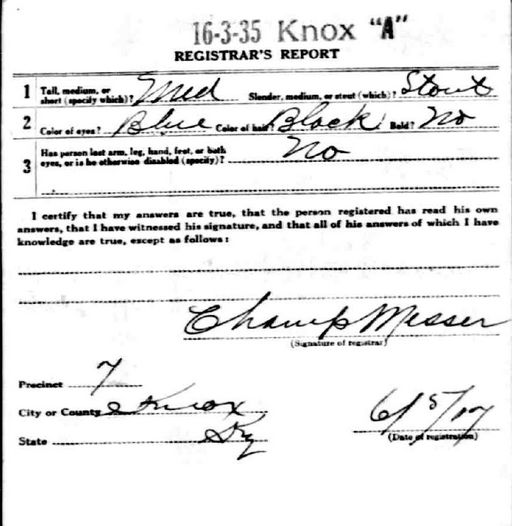 16-3-35 Knox "A"
REGISTRAR'S REPORT
1 Tall, medium, or short (specify which)? Med Slender, medium, or stout (which)? Stout
2 Color of eyes? Blue Color of hair? Black Bald? No
3 Has person lost arm, leg, hand, feet, or both eyes, or is he otherwise disabled (specify)? No
I certify that my answers are true, that the person registered has read his own
answers, that I have witnessed his signature, and that all of his answers of which I have
knowledge are true, except as follows:
Champ Messer
(Signature of registrar)
Precinct 7
City or County Knox
State Ky
6/5/17
(Date of registration)